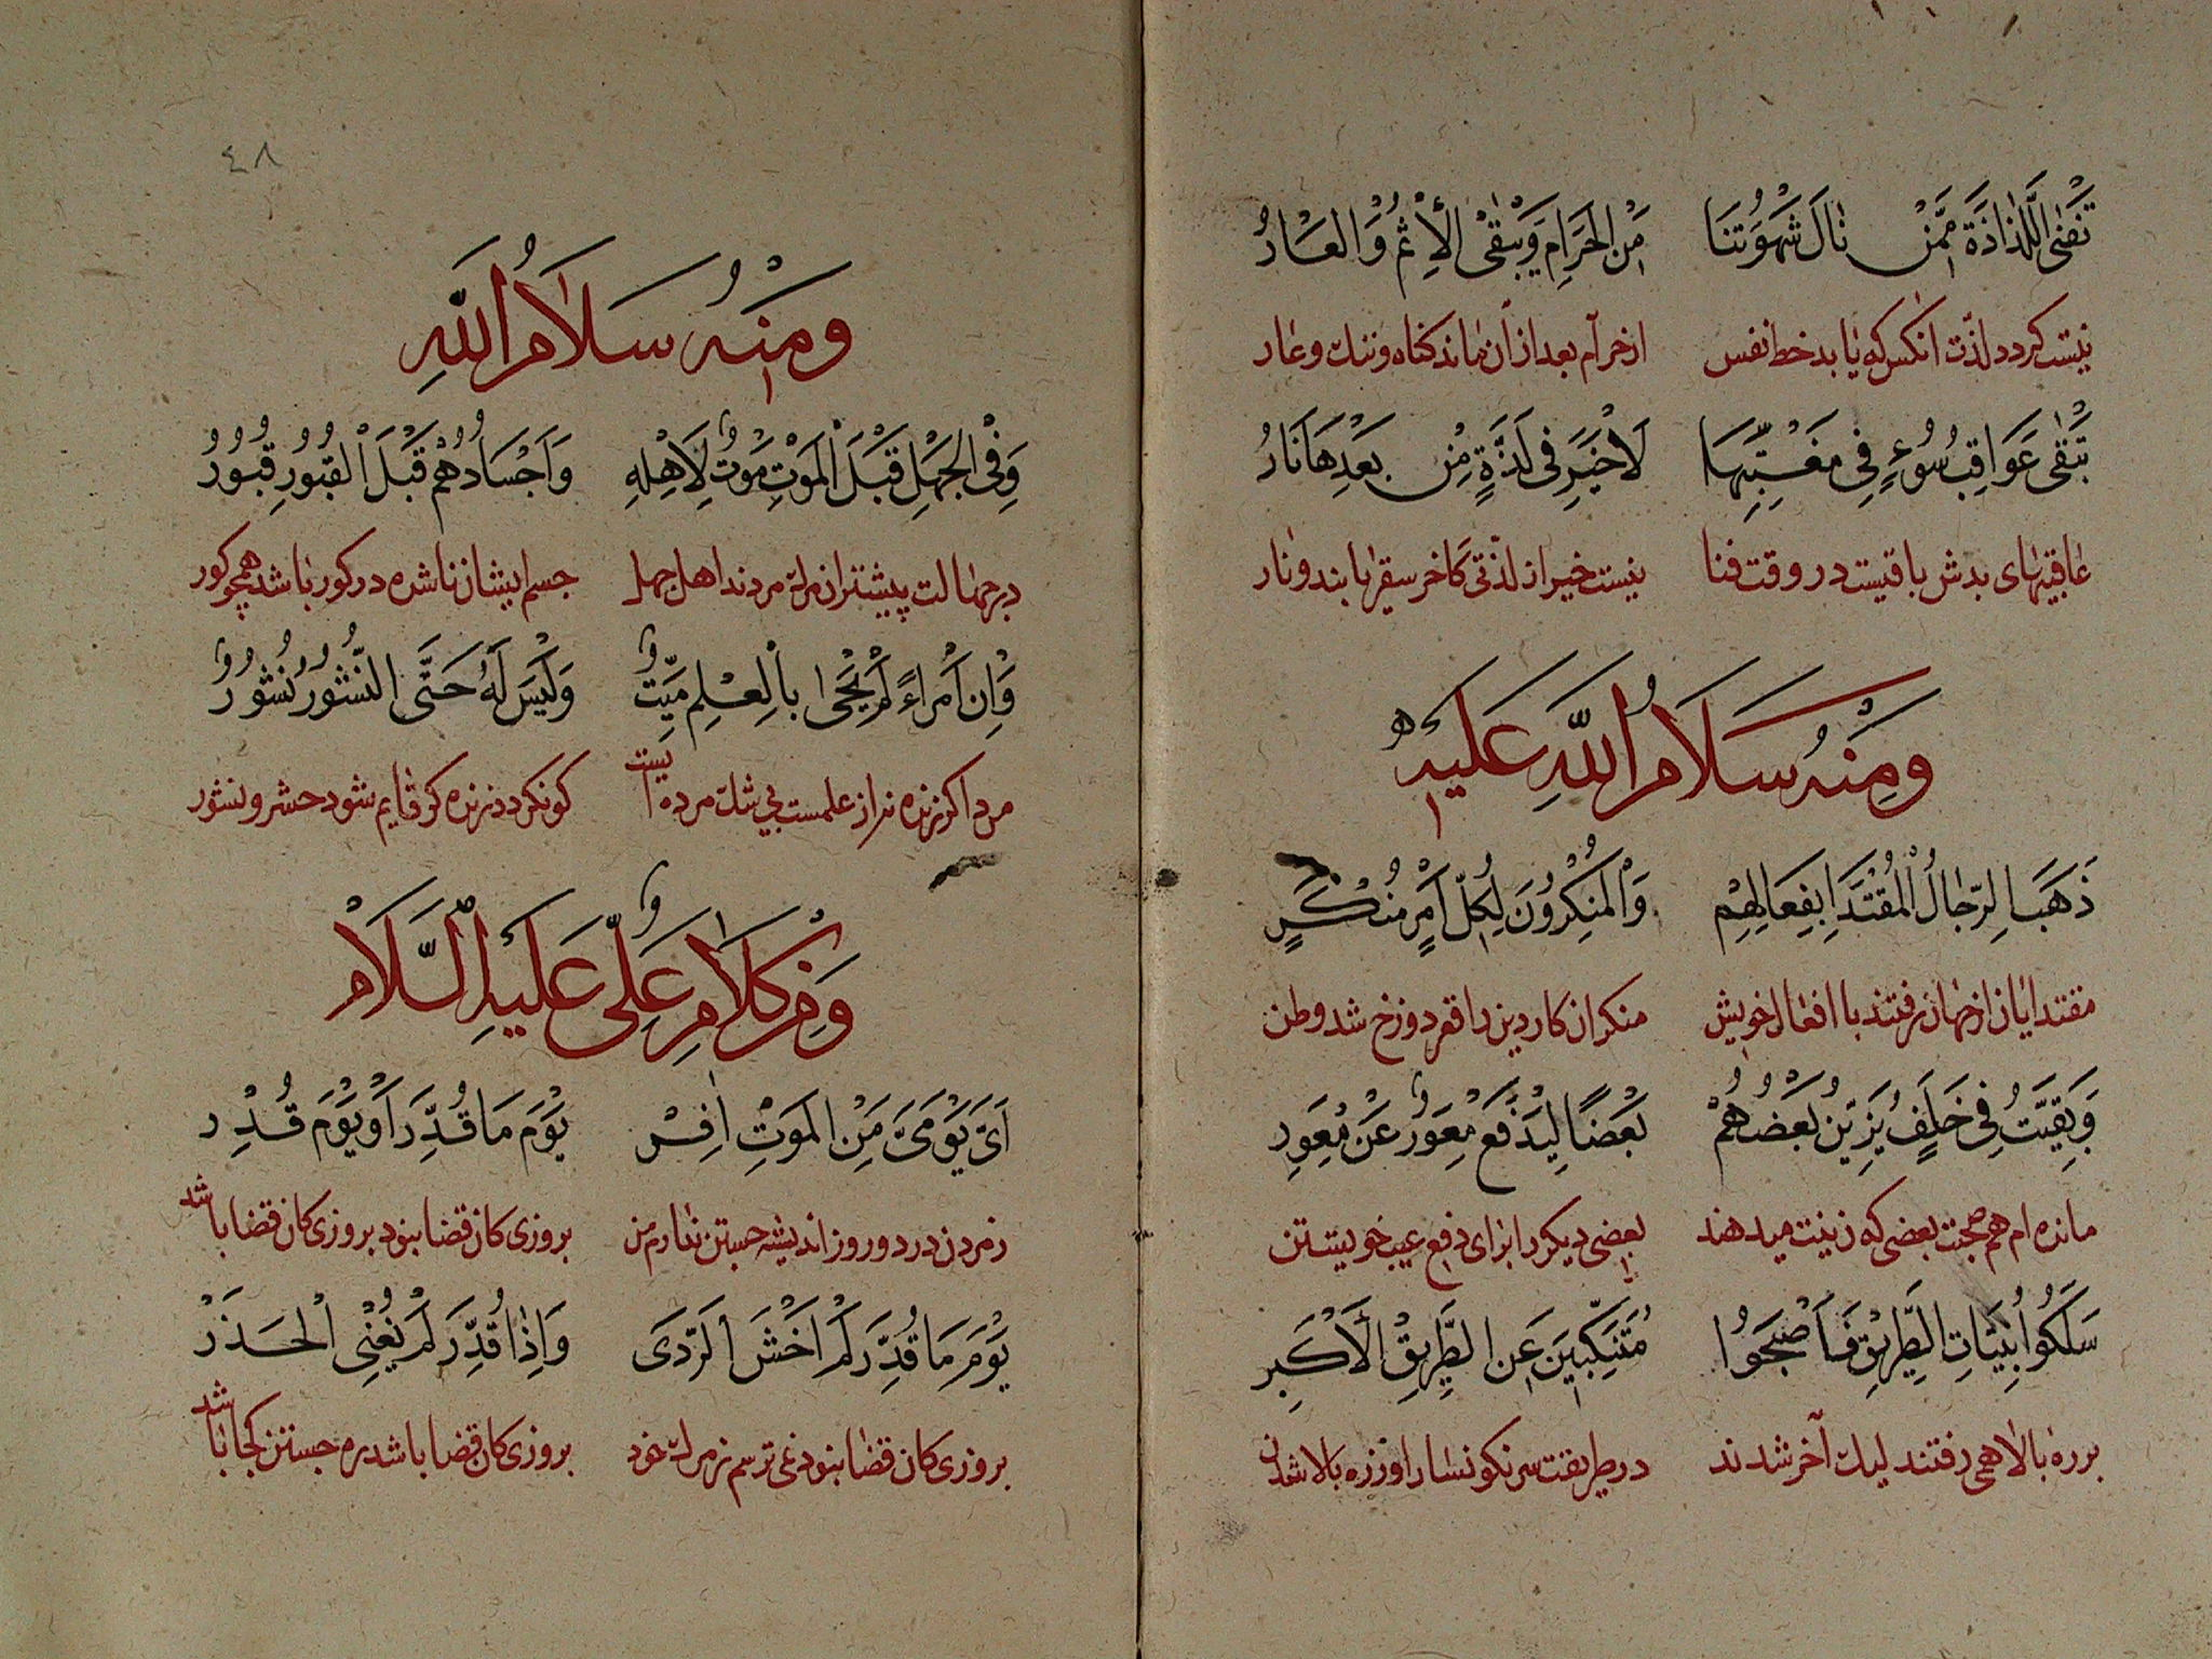 تَفْنَى اللَّذَاذَةُ مِمَّنْ نَالَ شَهْوَتَنَا مِنَ الْحَرَامِ وَيَبْقَى الْاِثْمُ وَالْعَارُ
نیست کردد لذت انکس که یابد خط نفس از حرام بعد از ان ماند کناه و ننك و عار
تَبْقَى عَوَاقِبُ سُوءٍ فِي مَغَبَّتِهَا لَا خَيْرَ فِي لَذَّةٍ مِنْ بَعْدِهَا نَارُ
عاقبتهای بدش باقیست در وقت فنا نیست خیر از لذتی کاخر سقر یابند و نار
وَمِنْهُ سَلَامُ اللهِ عَلَيْهِ
ذَهَبَ الرِّجَالُ الْمُقْتَدَا بِفِعَالِهِمْ وَالْمُنْكِرُونَ لِكُلِّ اَمْرٍ مُنْكَرٍ
مقتدایان از جهان رفتند با افعال خویش منکران کار دین را قعر دوزخ شد وطن
وَبَقِيتُ فِي خَلَفٍ يُزَيِّنُ بَعْضُهُمْ بَعْضًا لِيَدْفَعَ مُعْوِرٌ عَنْ مُعْوِرِ
مانده ام هم صحبت بعضی که زینت میدهند بعضی دیکر را برای دفع عیب خویشتن
سَلَكُوا بُنَيَّاتِ الطَّرِيقِ فَاَصْبَحُوا مُتَنَكِّبِينَ عَنِ الطَّرِيقِ الْاَكْبَرِ
بر ره بالا همی رفتند لیك آخر شدند در طریقت سرنکونسار او زره بالا شدن
٤٨
وَمِنْهُ سَلَامُ اللهِ
وَفِي الْجَهْلِ قَبْلَ الْمَوْتِ مَوْتٌ لِاَهْلِهِ وَاَجْسَادُهُمْ قَبْلَ الْقُبُورِ قُبُورُ
در جهالت پیشتر از مرك مردند اهل جهل جسم ایشان ناشده در کور باشد همچو کور
وَاِنَّ امْرَاءً لَمْ يَحْيَ بِالْعِلْمِ مَيِّتٌ وَلَيْسَ لَهُ حَتَّى النُّشُورِ نُشُورُ
مرد اکر زنده نه از علمست بی شك مرده ایست کو نکردد زنده کر قایم شود حشر و نشور
وَمِنْ كَلَامِ عَلِيٍّ عَلَيْهِ السَّلَامْ
اَيَّ يَوْمَيَّ مِنَ الْمَوْتِ اَفِرْ يَوْمَ مَا قُدِّرَ اَوْ يَوْمَ قُدِرْ
ز مردن در دو روز اندیشه جستن ندارم من بروزی کان قضا نبود بروزی کان قضا باشد
يَوْمَ مَا قُدِّرَ لَمْ اَخْشَ الرَّدَى وَاِذَا قُدِّرَ لَمْ يُغْنِي الْحَذَرْ
بروزی کان قضا نبود نمی ترسم ز مرك خود بروزی کان قضا باشد ره جستن کجا باشد